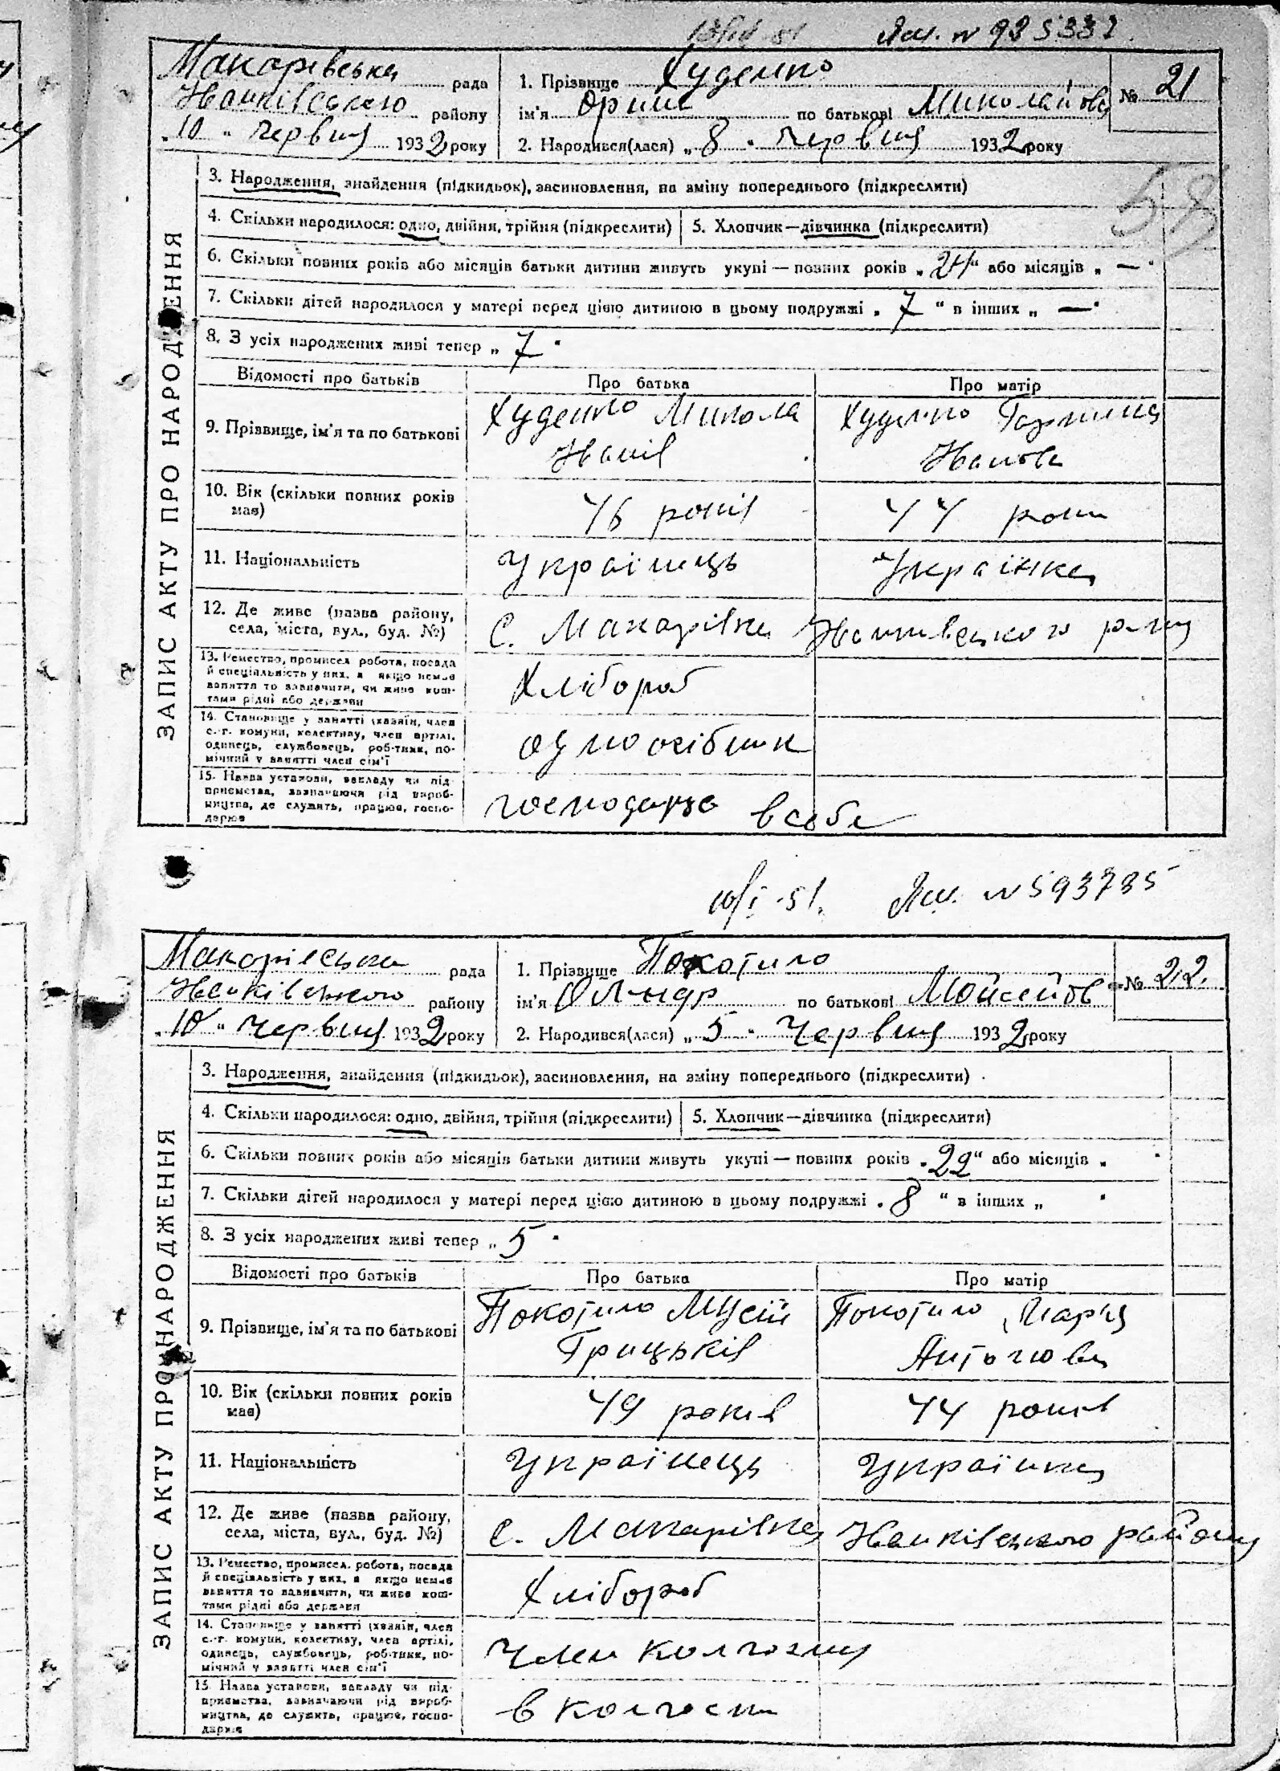 Яш. № 935332
Макарівська рада
Іванківського району
„10“ червня 1932 року
1. Прізвище Худенко
ім'я Орина по батькові Миколаївна
2. Народився(лася) „8“ червня 1932 року
№ 21
58
ЗАПИС АКТУ ПРО НАРОДЖЕННЯ
3. Народження, знайдення (підкидьок), засиновлення, на зміну попереднього (підкреслити)
4. Скільки народилося: одно, двійня, трійня (підкреслити) 5. Хлопчик—дівчинка (підкреслити)
6. Скільки повних років або місяців батьки дитини живуть укупі — повних років „24“ або місяців „—“
7. Скільки дітей народилося у матері перед цією дитиною в цьому подружжі „7“ в інших „—“
8. З усіх народжених живі тепер „7“
Відомості про батьків Про батька Про матір
9. Прізвище, ім'я та по батькові Худенко Микола Худенко
Іванів Іванова
10. Вік (скільки повних років має) 46 років 44 роки
11. Національність Українець Українка
12. Де живе (назва району, села, міста, вул., буд. №) С. Макарівка Іванківського району
13. Ремество, промисел, робота, посада
й спеціальність у них, а якщо немає
заняття то зазначити, чи живе кош-
тами рідні або держави
Хлібороб
14. Становище у занятті (хазяїн, член
с.-г. комуни, колективу, член артілі,
одинець, службовець, робітник, по-
мічний у занятті член сім'ї
одноосібник
15. Назва установи, закладу чи під-
приємства, зазначаючи рід вироб-
ництва, де служить, працює, госпо-
дарює
господарює в себе
10/I-51. Яш. № 593785
Макарівська рада
Іванківського району
„10“ червня 1932 року
1. Прізвище Покотило
ім'я по батькові Мойсейов
2. Народився(лася) „5“ червня 1932 року
№ 22.
ЗАПИС АКТУ ПРО НАРОДЖЕННЯ
3. Народження, знайдення (підкидьок), засиновлення, на зміну попереднього (підкреслити)
4. Скільки народилося: одно, двійня, трійня (підкреслити) 5. Хлопчик—дівчинка (підкреслити)
6. Скільки повних років або місяців батьки дитини живуть укупі — повних років „22“ або місяців „ “
7. Скільки дітей народилося у матері перед цією дитиною в цьому подружжі „8“ в інших „ “
8. З усіх народжених живі тепер „5“
Відомості про батьків Про батька Про матір
9. Прізвище, ім'я та по батькові Покотило Мусій Покотило Марія
Грицьків Антонова
10. Вік (скільки повних років має) 49 років 44 років
11. Національність Українець Українка
12. Де живе (назва району, села, міста, вул., буд. №) С. Макарівка Іванківського району
13. Ремество, промисел, робота, посада
й спеціальність у них, а якщо немає
заняття то зазначити, чи живе кош-
тами рідні або держави
Хлібороб
14. Становище у занятті (хазяїн, член
с.-г. комуни, колективу, член артілі,
одинець, службовець, робітник, по-
мічний у занятті член сім'ї
член колгоспу
15. Назва установи, закладу чи під-
приємства, зазначаючи рід вироб-
ництва, де служить, працює, госпо-
дарює
в колгоспі